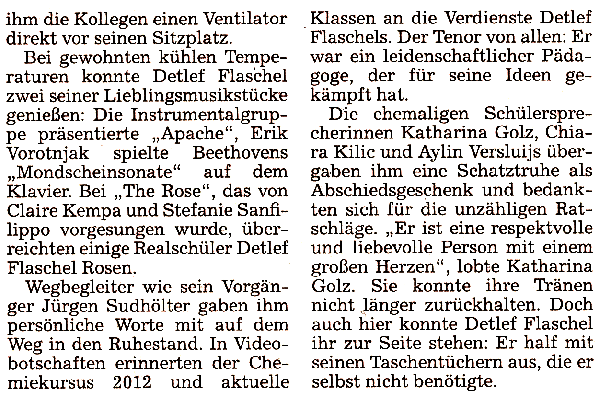 ihm die Kollegen einen Ventilator
direkt vor seinen Sitzplatz.
Bei gewohnten kühlen Tempe-
raturen konnte Detlef Flaschel
zwei seiner Lieblingsmusikstücke
genießen: Die Instrumentalgrup-
pe präsentierte „Apache“, Erik
Vorotnjak spielte Beethovens
„Mondscheinsonate“ auf dem
Klavier. Bei „The Rose“, das von
Claire Kempa und Stefanie Sanfi-
lippo vorgesungen wurde, über-
reichten einige Realschüler Detlef
Flaschel Rosen.
Wegbegleiter wie sein Vorgän-
ger Jürgen Sudhölter gaben ihm
persönliche Worte mit auf dem
Weg in den Ruhestand. In Video-
botschaften erinnerten der Che-
miekursus 2012 und aktuelle
Klassen an die Verdienste Detlef
Flaschels. Der Tenor von allen: Er
war ein leidenschaftlicher Päda-
goge, der für seine Ideen ge-
kämpft hat.
Die ehemaligen Schülerspre-
cherinnen Katharina Golz, Chia-
ra Kilic und Aylin Versluijs über-
gaben ihm eine Schatztruhe als
Abschiedsgeschenk und bedank-
ten sich für die unzähligen Rat-
schläge. „Er ist eine respektvolle
und liebevolle Person mit einem
großen Herzen“, lobte Katharina
Golz. Sie konnte ihre Tränen
nicht länger zurückhalten. Doch
auch hier konnte Detlef Flaschel
ihr zur Seite stehen: Er half mit
seinen Taschentüchern aus, die er
selbst nicht benötigte.